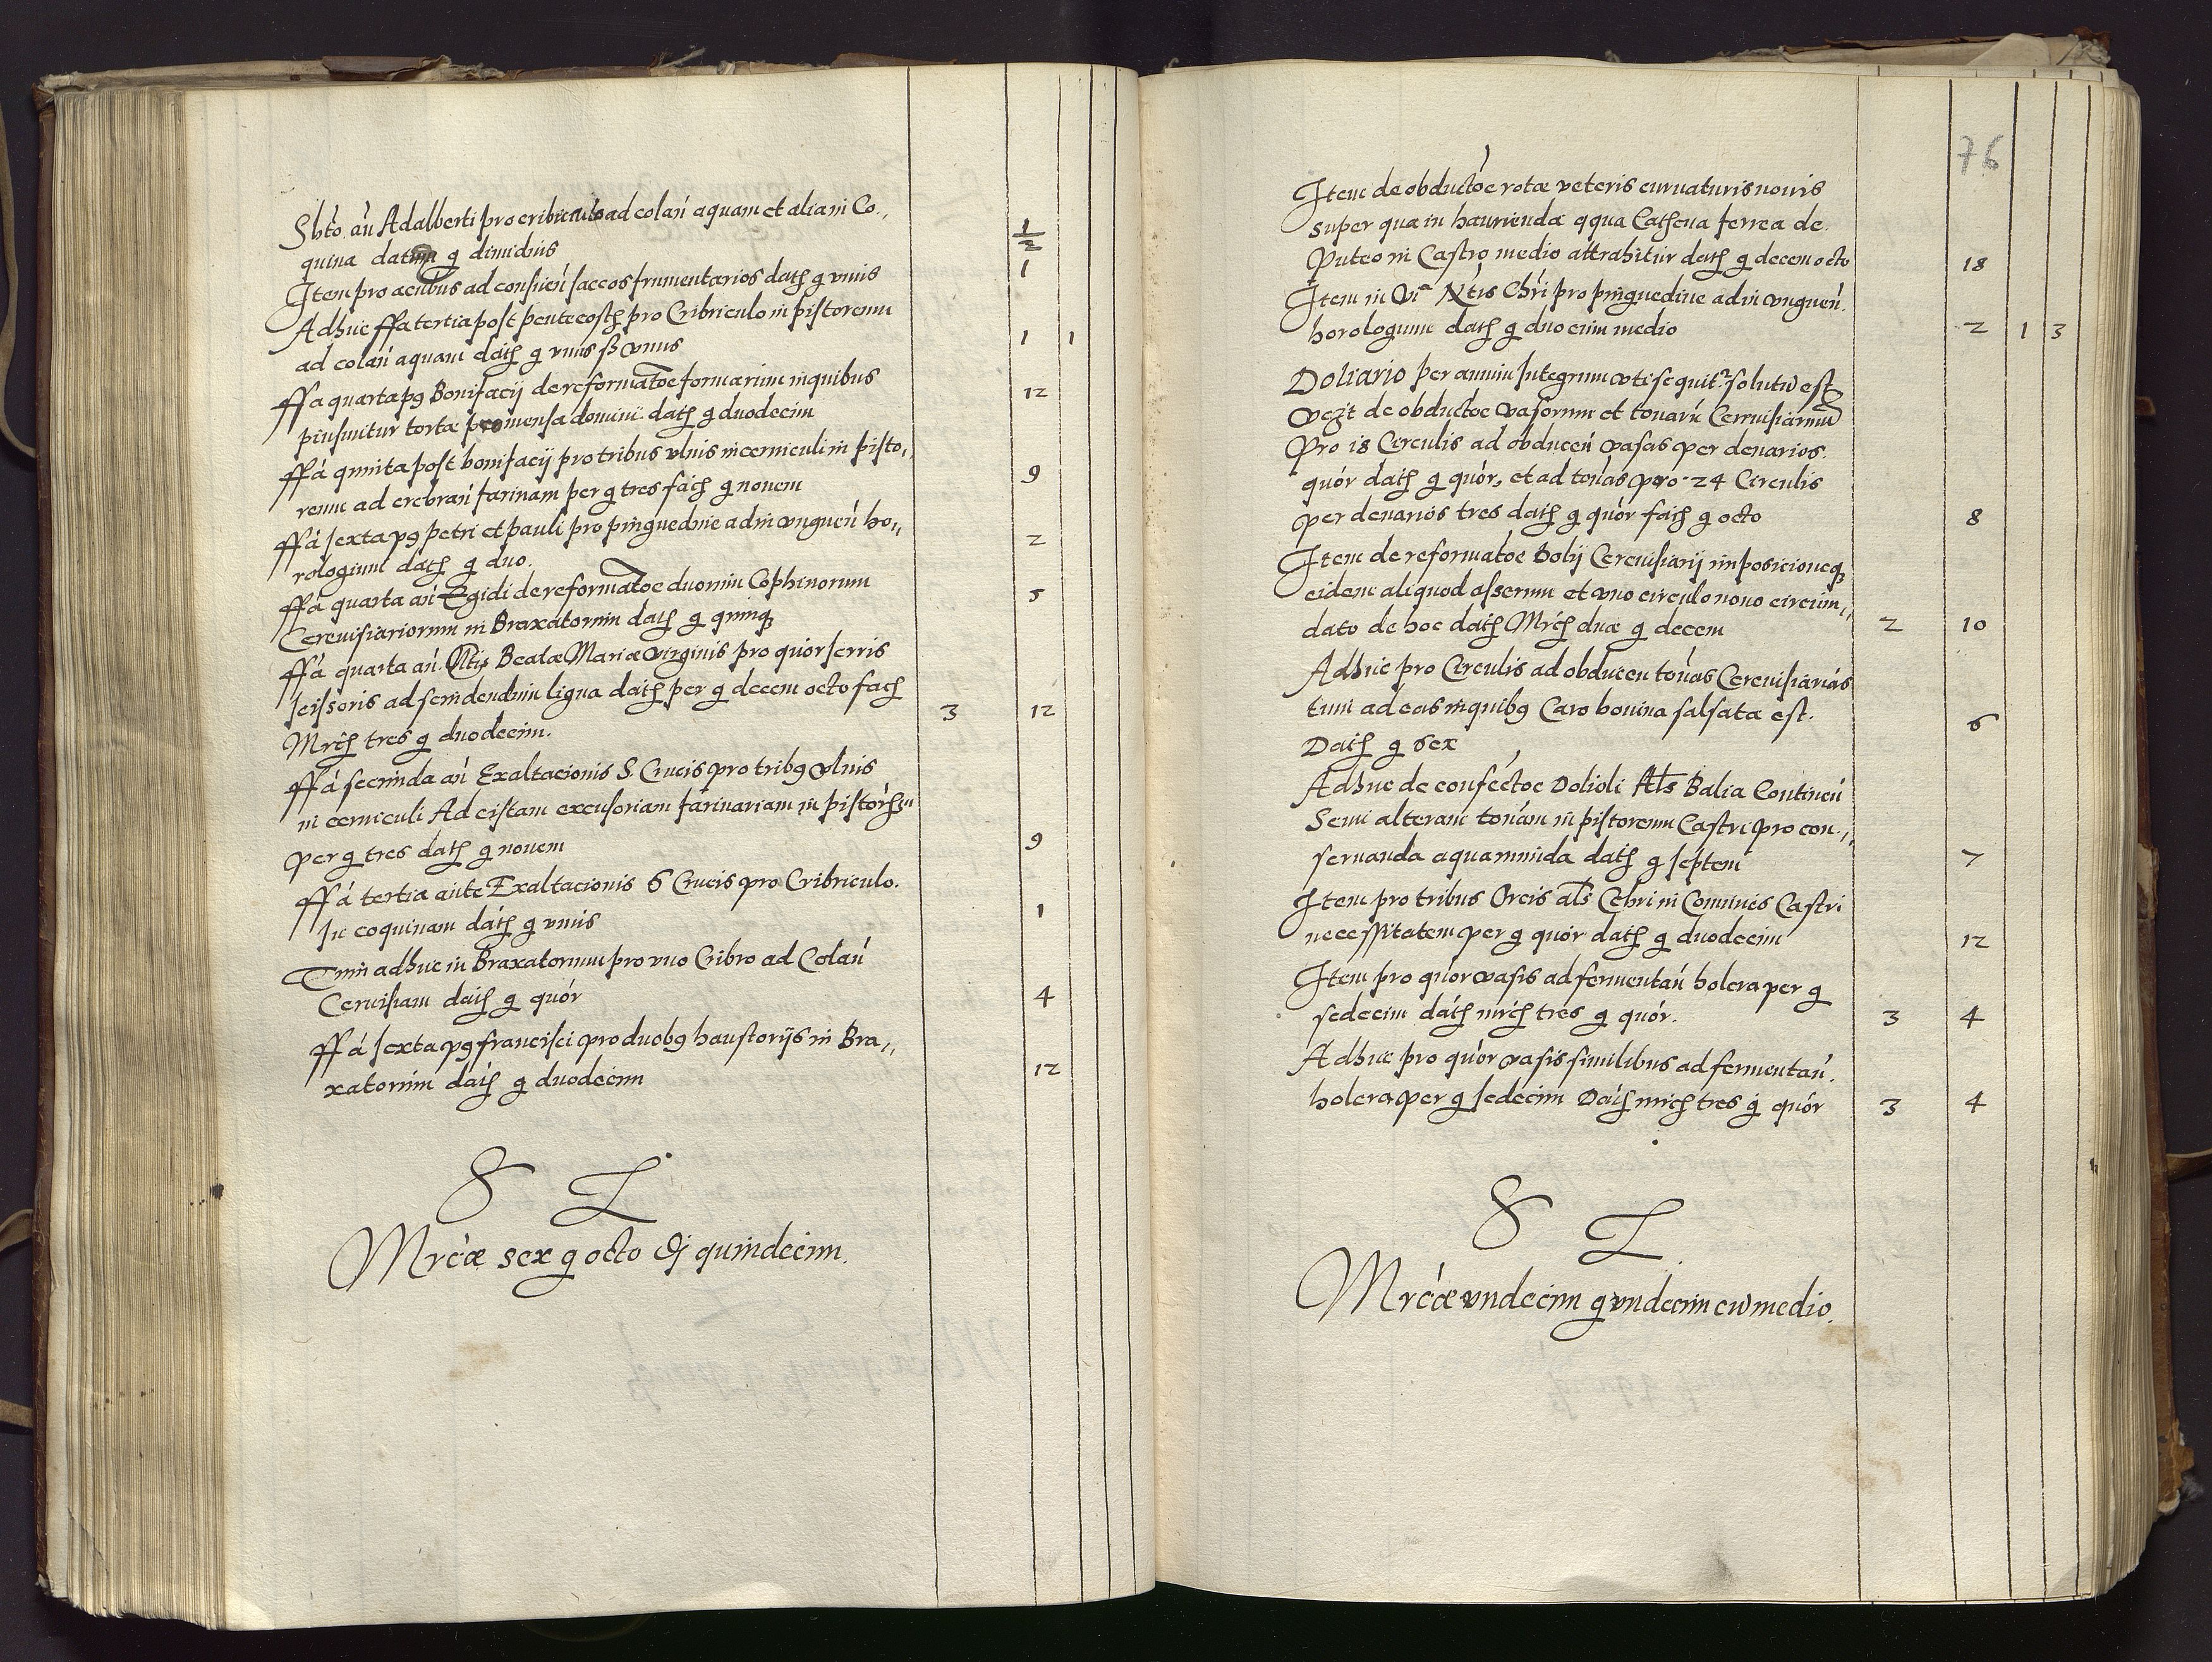 Sbto. añ Adalberti pro cribriculo ad colañ aquam et alia in Co„ 1/2
quina datum g dimidius
Item pro acubus ad consueñ saccos frumentarios dath g vnus 1
Adhuc ffa tertia post pentecosth pro Cribriculo in pistorenu
ad colañ aquam dath g vnus ß vnus 1 1
ffa quarta pq Bonifacij de reformatoe formarum in quibus 12
pinsuntur tortæ pro mensa domini dath g duodecim
ffá quinta post bonifacij pro tribus vlnis in cerniculi in pisto„
renu ad crebrañ farinam per g tres fach g nouem 9
ffá sexta pq petri et pauli pro pinguednie ad in vngueñ ho„
rologium dath g duo. 2
ffá quarta añ Egidi de reformatoe duorum Cophinorum
Cereuisiariorum in Braxatorium dath g quinq 5
ffá quarta añ. Ntis Beatæ Mariæ virginis pro quór serris
scissoris ad scindendum ligna dath per g decem octo fach
Mrch tres g duodecim. 3 12
ffá secunda añ Exaltacionis S. Crucis pro tribq vlnis
in cerniculi Ad cistam excusoriam farinariam in pistorh„
per g tres dath g nouem 9
ffá tertia ante Exaltacionis S Crucis pro Cribriculo.
In coquinam dath g vnus 1
Tum adhuc in Braxatorium pro vno Cribro ad Colañ
Ceruisiam dath g quór 4
ffá sexta pq francisci pro duobq haustorijs in Bra„
xatorium dath g duodecim 12
S L
Mrcæ sex g octo dj quindecim.
76
Item de obductoe rotæ veteris curuaturis nouis
super qua in haurienda aqua Cathena ferrea de
Puteo in Castro medio attrahitur dath g decem octo 18
Item in Via Ntis Chri pro pinguedine ad in vngueñ.
horologium dath g duo cum medio 2 1 3
Doliario per annum Integrum vti sequit solutū est
Vezt de obductoe vasorum et tonarū Cereuisiarum
Pro 18 Cerculis ad obduceñ vasas per denarios.
quór dath g quór, et ad tonás pro 24 Circulis
per denarios tres dath g quór fach g octo 8
Item de reformatoe Dolij Cereuisiarij imposicioneq
eidem aliquod asserum et vno circulo nouo circum„
dato de hoc dath Mrch duæ g decem 2 10
Adhuc pro Cerculis ad obducen tonás Cereuisiariás
tum ad eas in quibq Caro bouina salsata est.
Dath g sex 6
Adhuc de confectoe Dolioli Als Balia Contineñ
Semi alteram tonám in pistorenu Castri pro con„
seruanda aqua munda dath g septem 7
Item pro tribus Orcis als Cebri in Comunes Castri
necessitatem per g quór dath g duodecim 12
Item pro quór vasis ad fermentañ holera per g
sedecim dath mrch tres g quór. 3 4
Adhuc pro quór vasis similibus ad fermentañ.
holera per g sedecim Dath mrch tres g quór 3 4
S L
Mrcæ vndecim g vndecim cū medio.